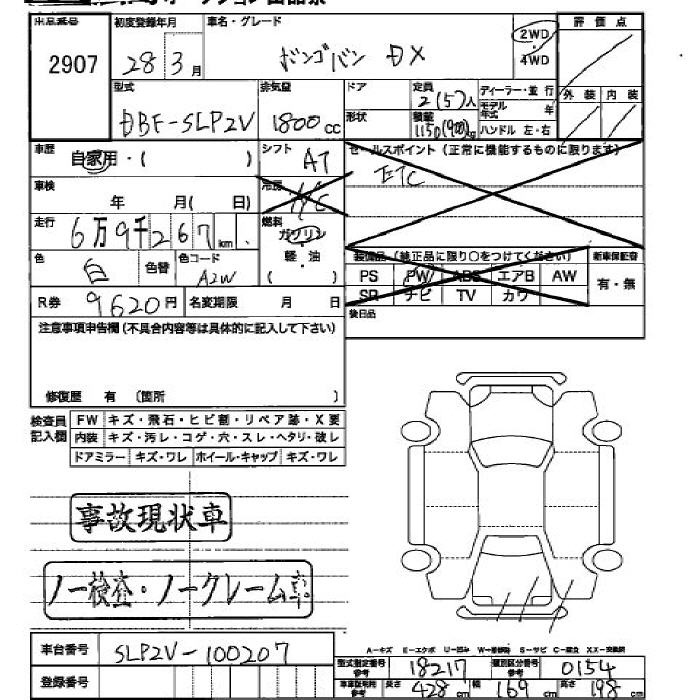 出品番号 初度登録年月 車名・グレード 評価点
2907 28 3月 ボンゴバン DX 2WD
・
4WD
型式 排気量 ドア 定員 ディーラー・並行 外装 内装
2(5)人 モデル年式 年
DBF-SLP2V 1800cc 形状 積載 1150(900)kg ハンドル 左・右
車歴 自家用・( ) シフト AT セールスポイント(正常に機能するものに限ります)
ETC
車検 年 月( 日) 冷房 A/C
走行 6万9千267km 燃料 ガソリン
軽・油
( )
色 白 色替 色コード A2W 装備品(純正品に限り○をつけてください) 新車保証書
PS PW ABS エアB AW 有・無
R券 9620円 名変期限 月 日 SR ナビ TV カワ
注意事項申告欄(不具合内容等は具体的に記入して下さい) 後日品
修復歴 有 (箇所 )
検査員記入欄 FW キズ・飛石・ヒビ割・リペア跡・X要
内装 キズ・汚レ・コゲ・穴・スレ・ヘタリ・破レ
ドアミラー キズ・ワレ ホイール・キャップ キズ・ワレ
事故現状車
ノー検査・ノークレーム車
車台番号 SLP2V-100207
A-キズ E-エクボ U-凹み W-補修跡 S-サビ C-腐食 XX-交換済
型式指定番号参考 18217 類別区分番号参考 0154
登録番号 車庫証明用参考 長さ 428cm 幅 169cm 高さ 198cm